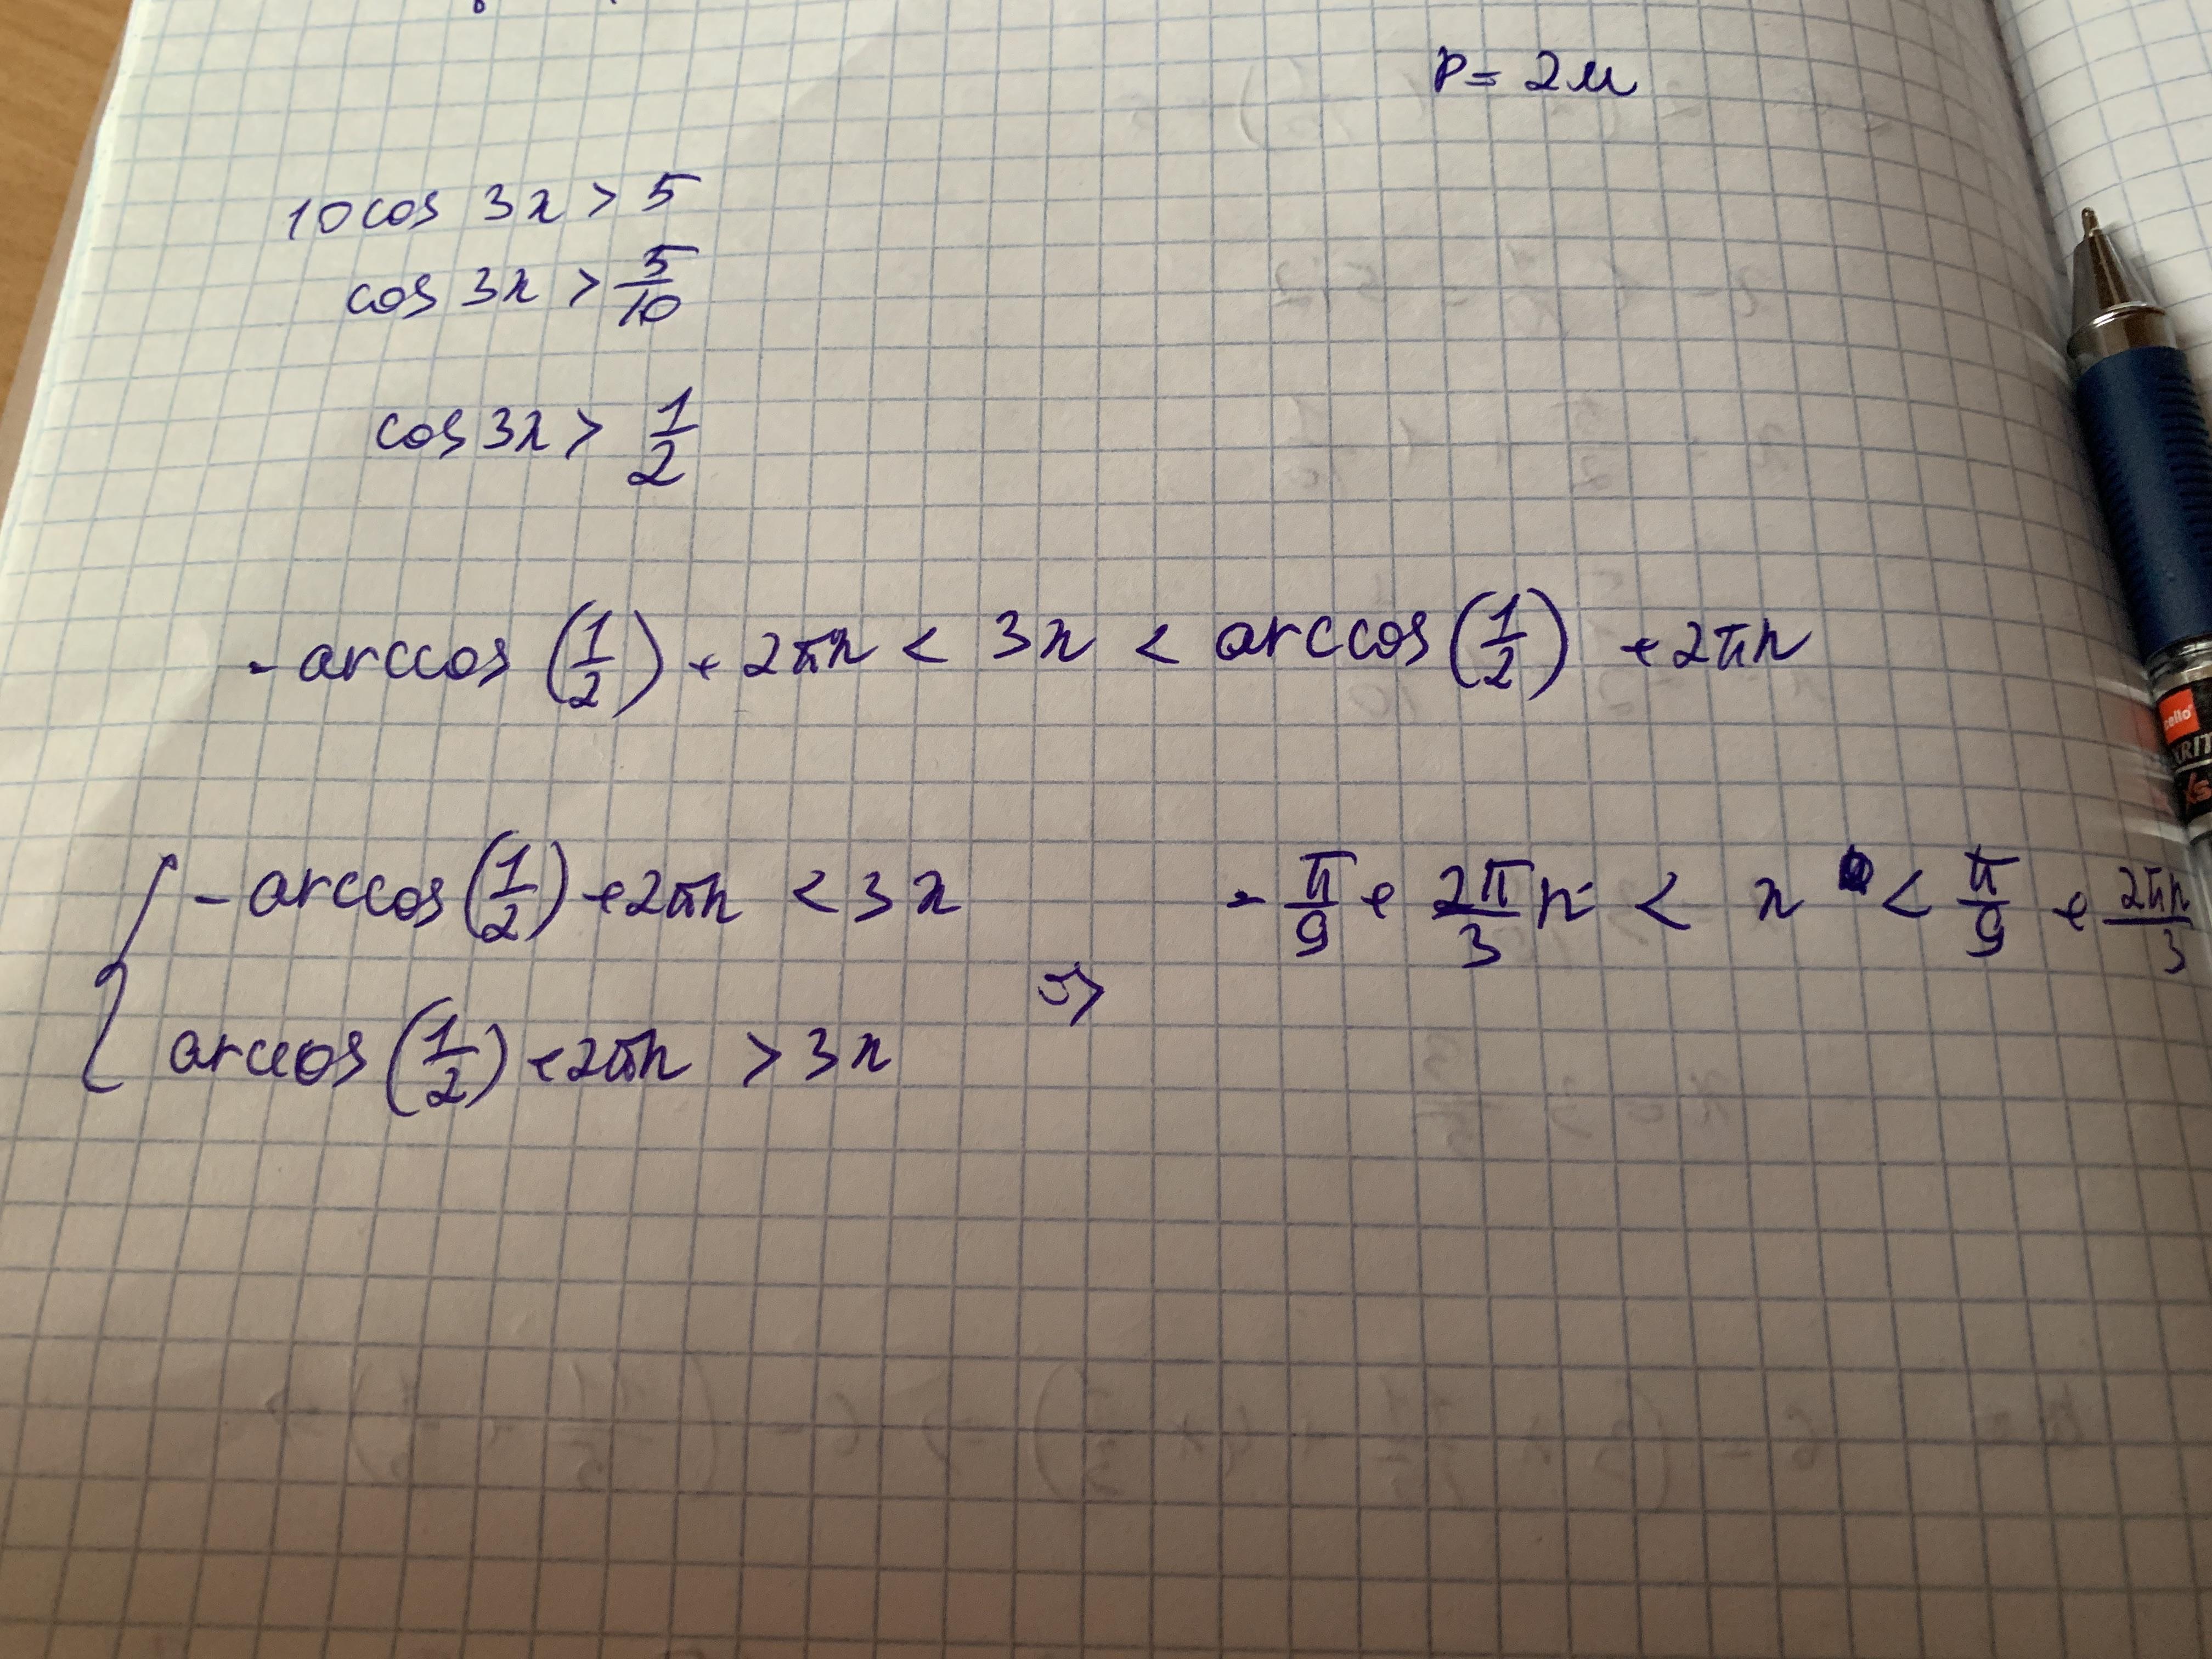 P = 2м
10cos 3x > 5
cos 3x > 5/10
cos 3x > 1/2
- arccos (1/2) + 2πn < 3x < arccos (1/2) + 2πn
{ - arccos (1/2) + 2πn < 3x
arccos (1/2) + 2πn > 3x
=> - π/9 + 2π/3 n < x < π/9 + 2πn/3
cello